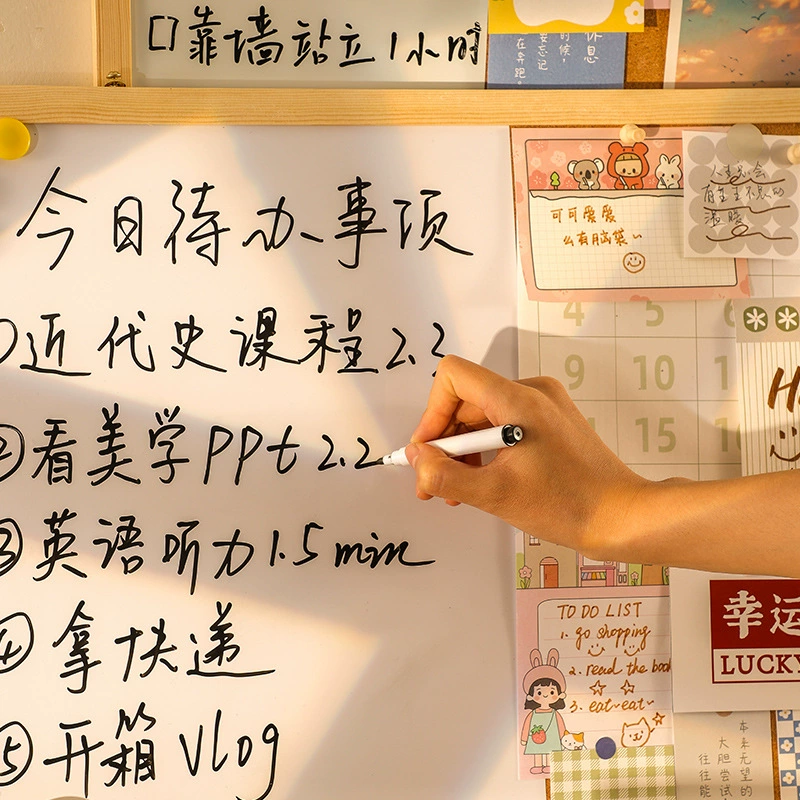 口靠墙站立1小时
休息
的时候,
要忘记
在奔跑。
今日待办事项
①近代史课程2.3
②看美学ppt 2.2
③英语听力1.5min
④拿快递
⑤开箱vlog
可可爱爱
么有脑袋~
人生总会
温暖
4 5 6
9 10
15
TO DO LIST
1. go shopping
2. read the book
3. eat~eat~
幸运
LUCKY
本来无望的
大胆尝试
往往能